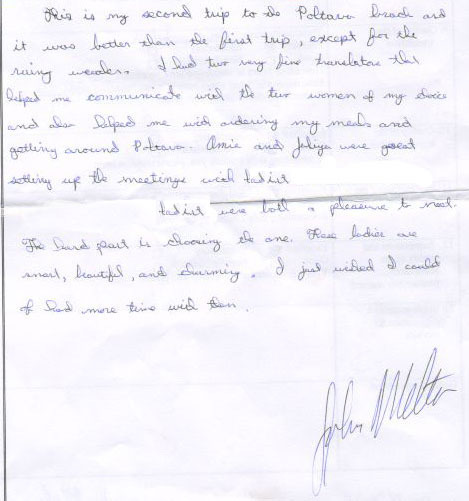 This is my second trip to the Poltava brach and
it was better than the first trip, except for the
rainy weader. I had two very fine translators that
helped me communicate with the two women of my choice
and also helped me with ordering my meals and
getting around Poltava. Amie and Juliya were great
setting up the meetings with
were both a pleasure to meet.
The hard part is choosing the one. These ladies are
smart, beautiful, and charming. I just wished I could
of had more time with them.
John Melton